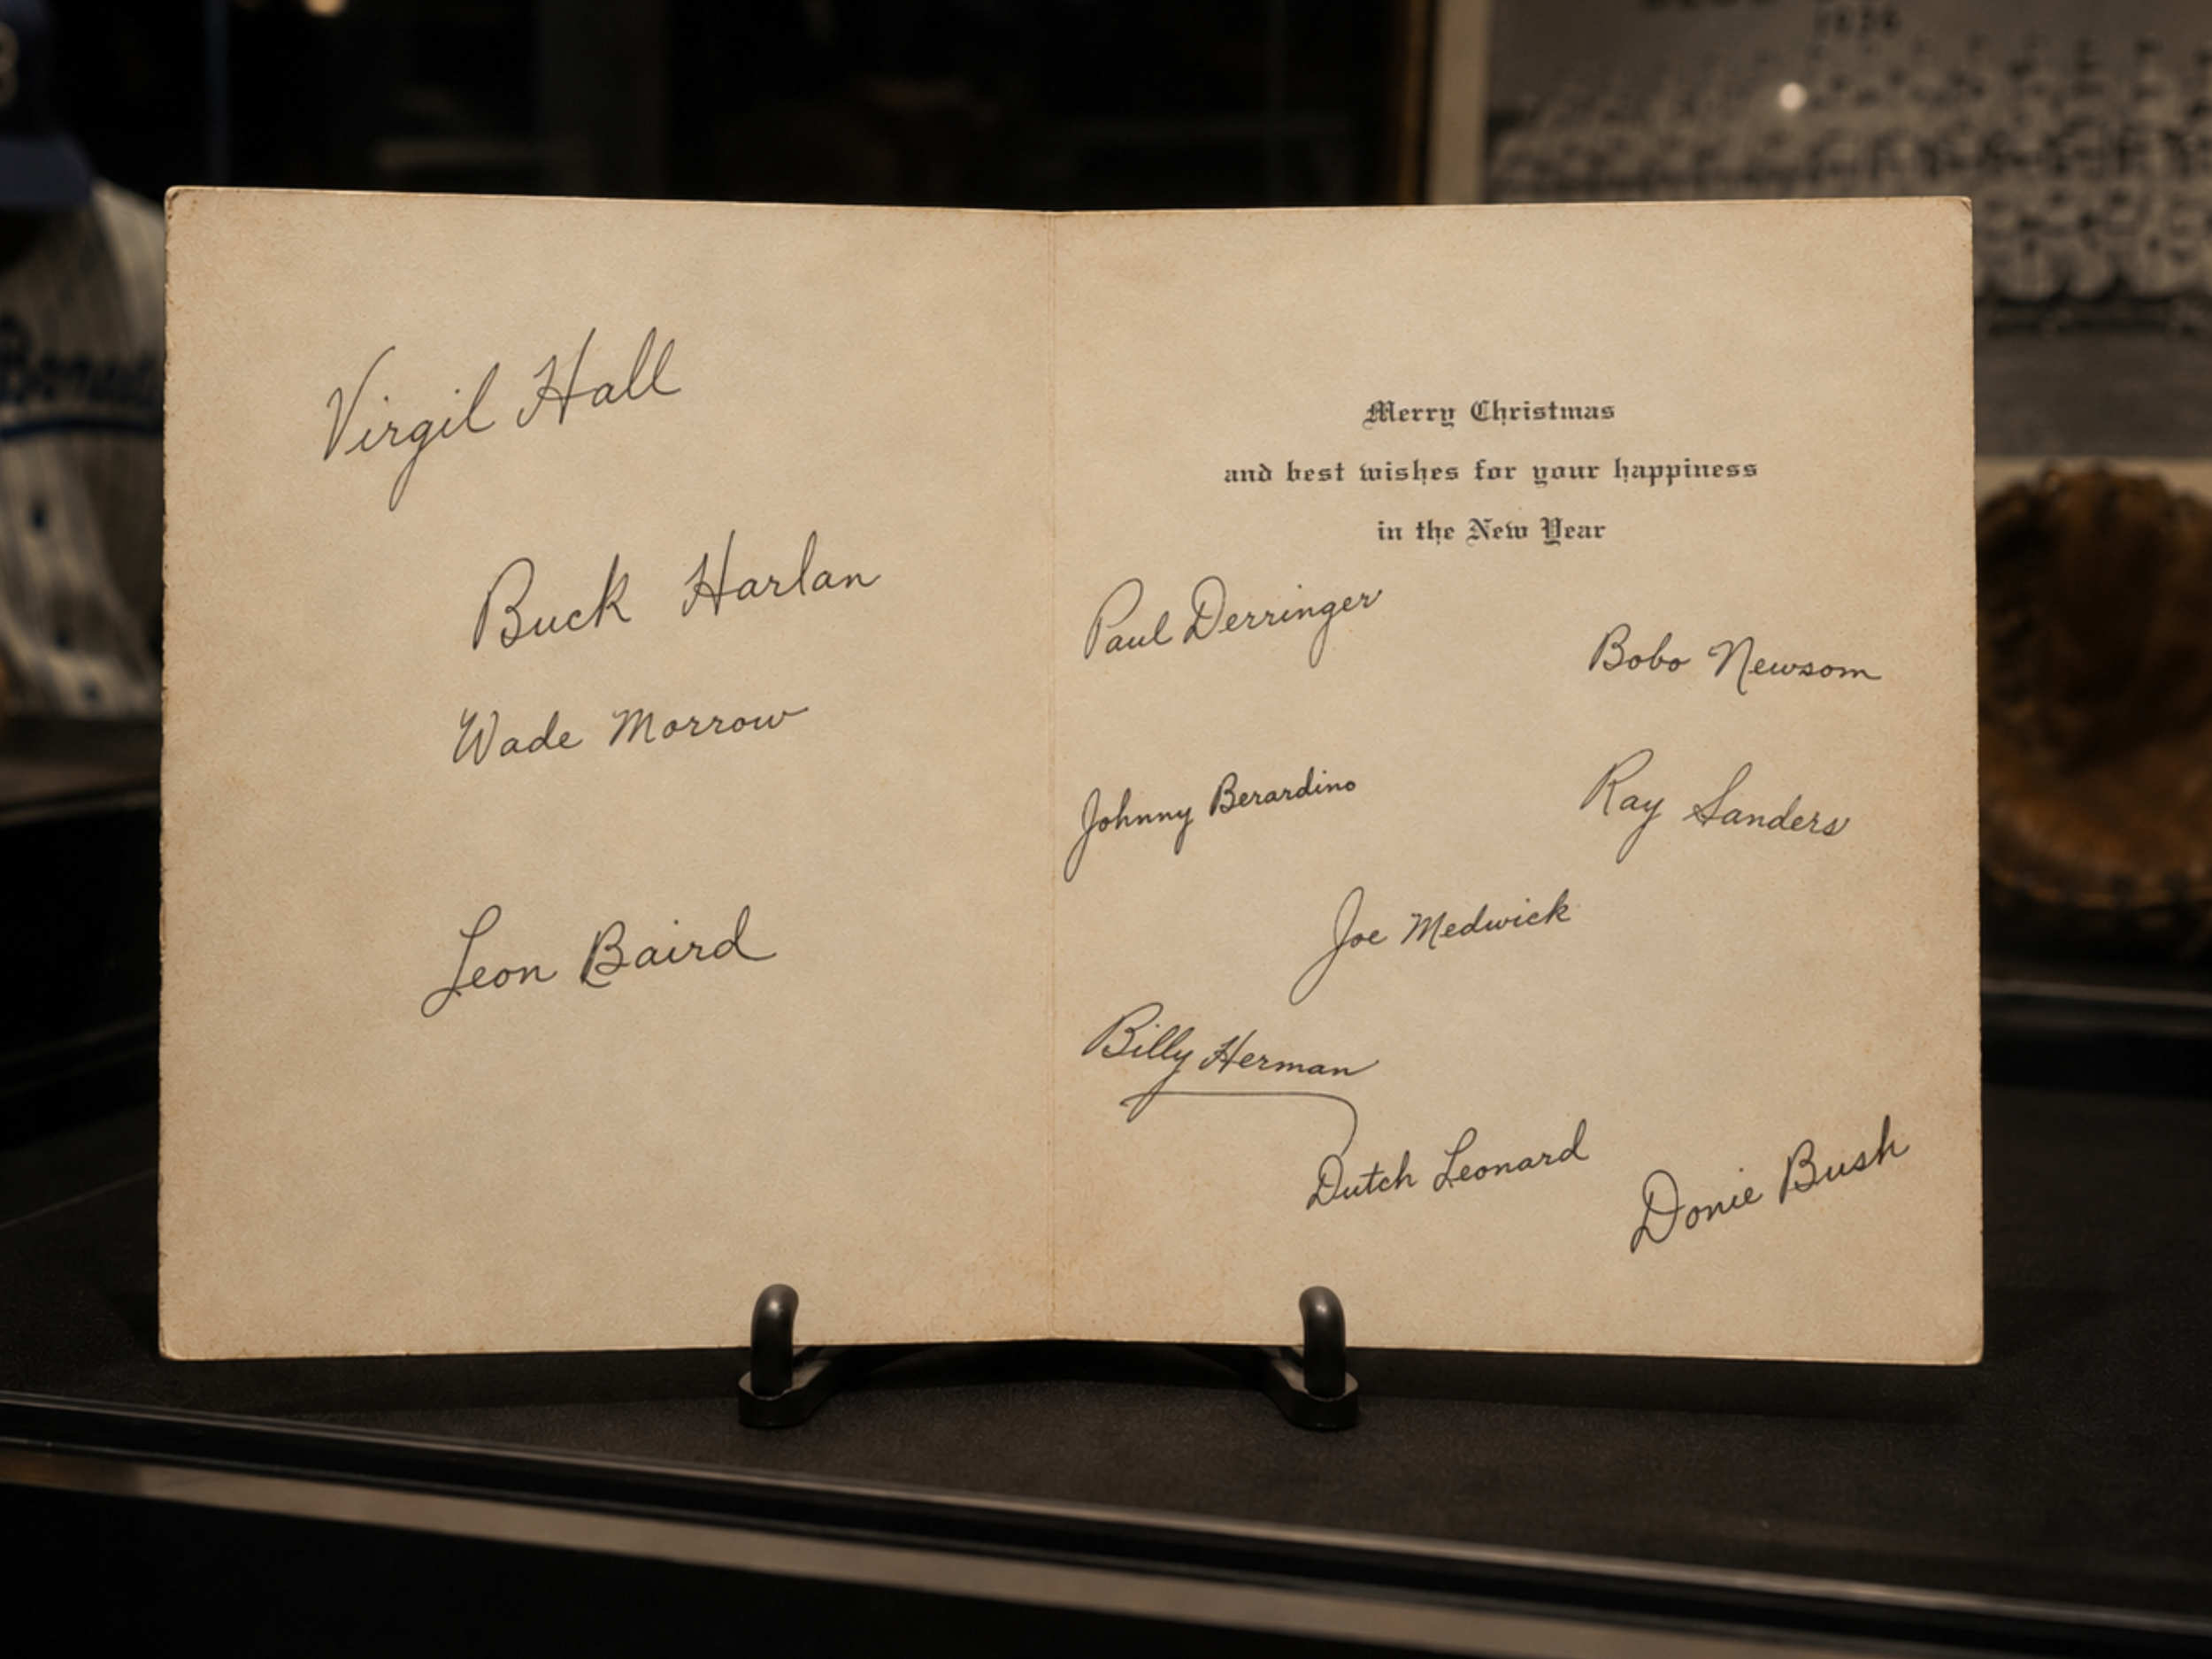 Virgil Hall
Buck Harlan
Wade Morrow
Leon Baird
Merry Christmas
and best wishes for your happiness
in the New Year
Paul Derringer
Bobo Newsom
Johnny Berardino
Ray Sanders
Joe Medwick
Billy Herman
Dutch Leonard
Donie Bush
1936